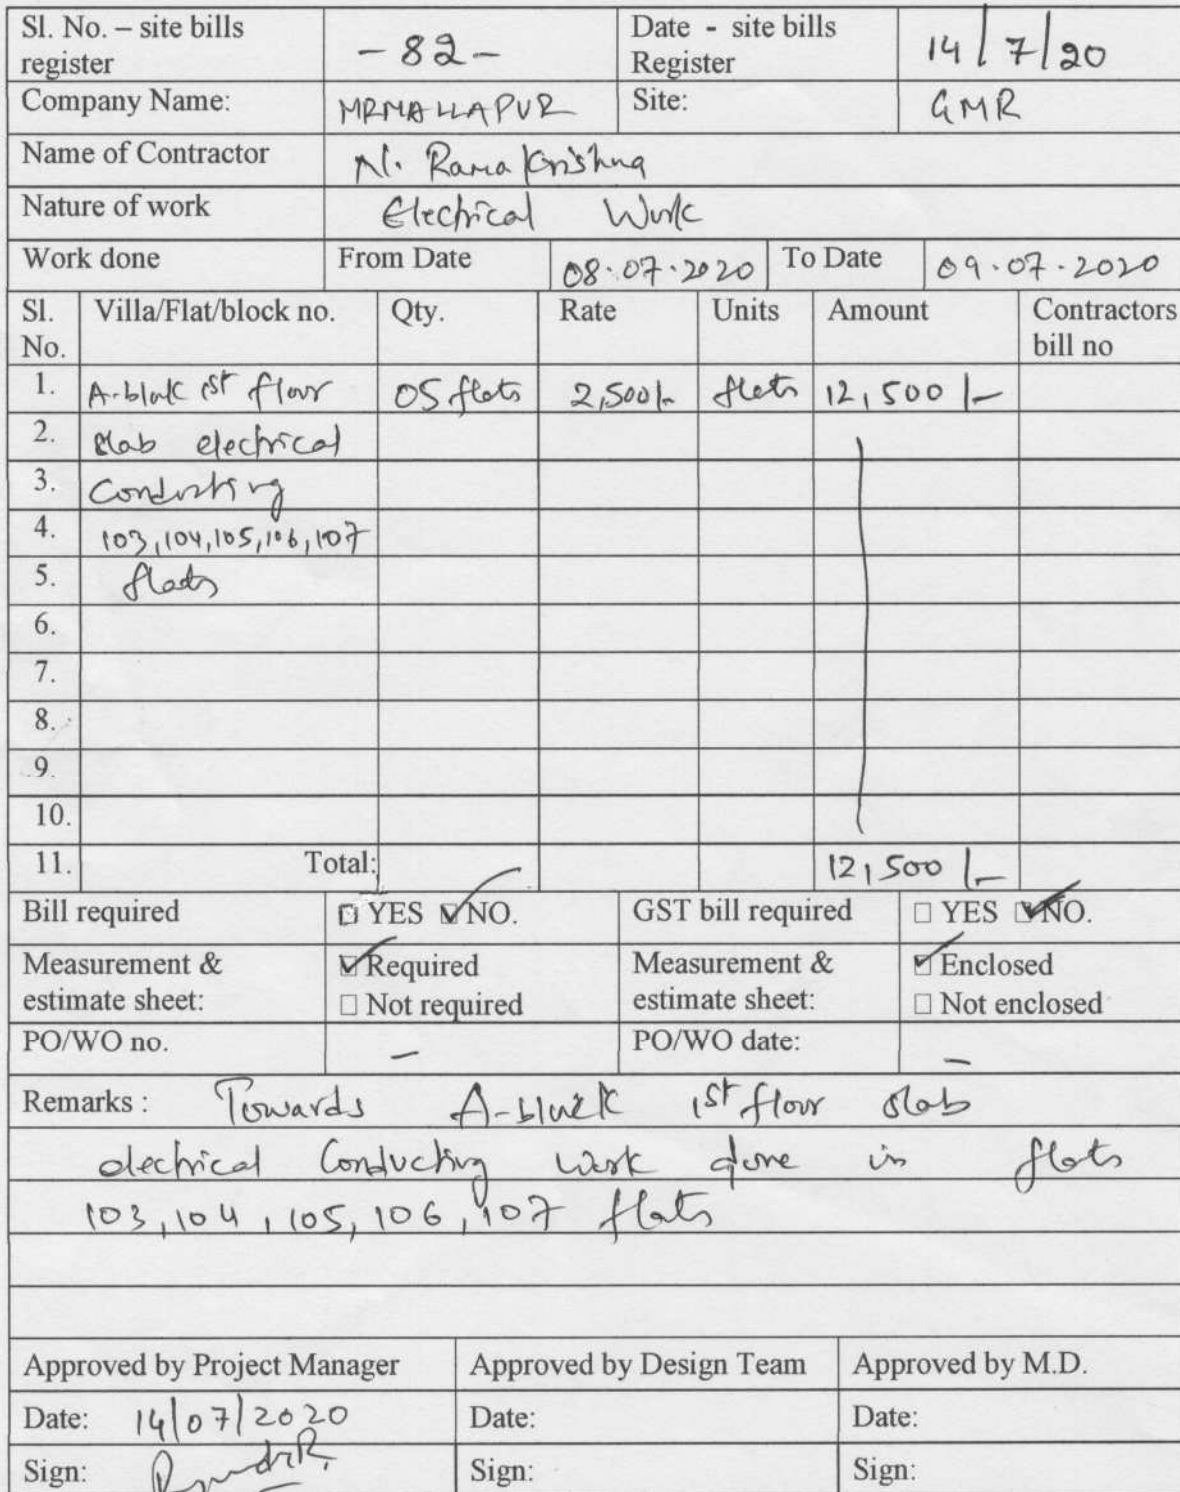 Sl. No. – site bills register -82- Date - site bills Register 14/7/20
Company Name: MRMALLAPUR Site: GMR
Name of Contractor N. Rama Krishna
Nature of work Electrical Work
Work done From Date 08.07.2020 To Date 09.07.2020
Sl. No. Villa/Flat/block no. Qty. Rate Units Amount Contractors bill no
1. A-block 1st floor 05 flats 2,500/- flats 12,500/-
2. slab electrical
3. Conducting
4. 103,104,105,106,107
5. flats
6.
7.
8.
9.
10.
11. Total: 12,500/-
Bill required ☐ YES ☑ NO. GST bill required ☐ YES ☑ NO.
Measurement & estimate sheet: ☑ Required ☐ Not required Measurement & estimate sheet: ☑ Enclosed ☐ Not enclosed
PO/WO no. – PO/WO date: –
Remarks : Towards A-block 1st floor slab
electrical Conducting work done in flats
103,104,105,106,107 flats
Approved by Project Manager Approved by Design Team Approved by M.D.
Date: 14/07/2020 Date: Date:
Sign: Sign: Sign: